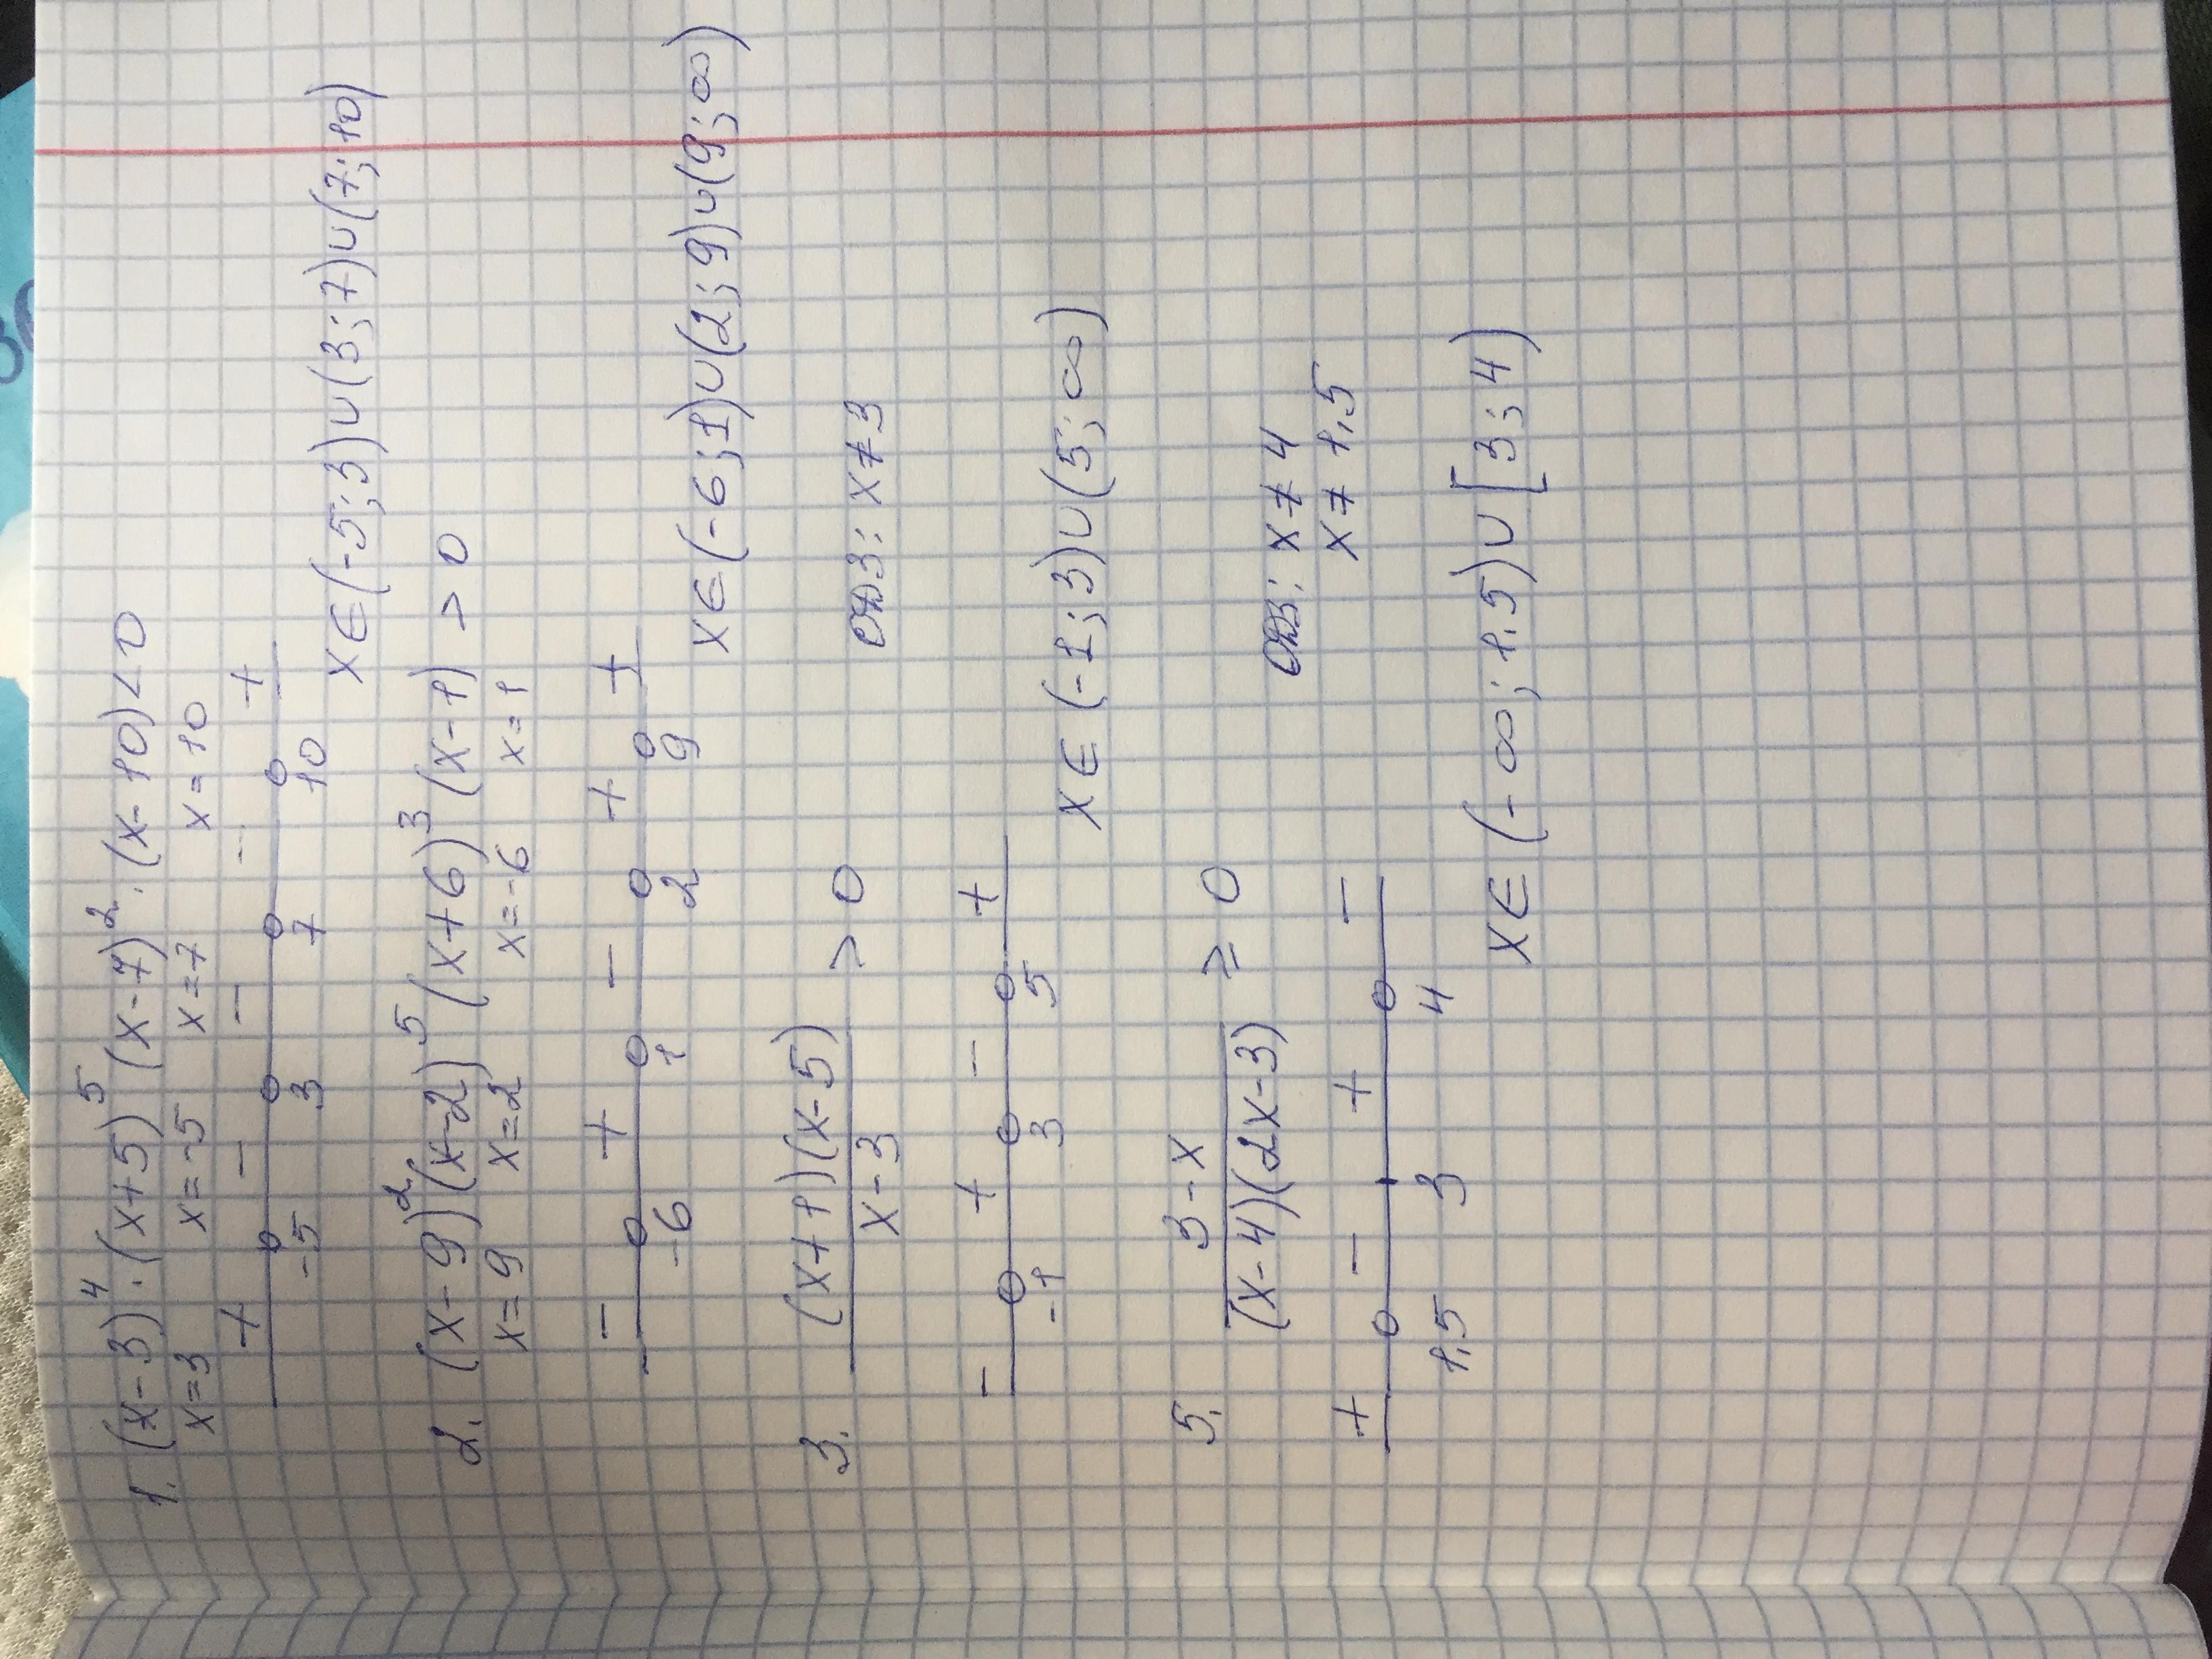 1. (x-3)⁴·(x+5)⁵(x-7)²·(x-10)<0
x=3 x=-5 x=7 x=10
+ - - - +
-5 3 7 10
x∈(-5;3)∪(3;7)∪(7;10)
2. (x-9)²(x-2)⁵(x+6)³(x-1)>0
x=9 x=2 x=-6 x=1
- + - + +
-6 1 2 9
x∈(-6;1)∪(2;9)∪(9;∞)
3. (x+1)(x-5) > 0
x-3
ОДЗ: x≠3
- + - +
-1 3 5
x∈(-1;3)∪(5;∞)
5. 3-x ≥ 0
(x-4)(2x-3)
ОДЗ: x≠4
x≠1,5
+ - + -
1,5 3 4
x∈(-∞;1,5)∪[3;4)